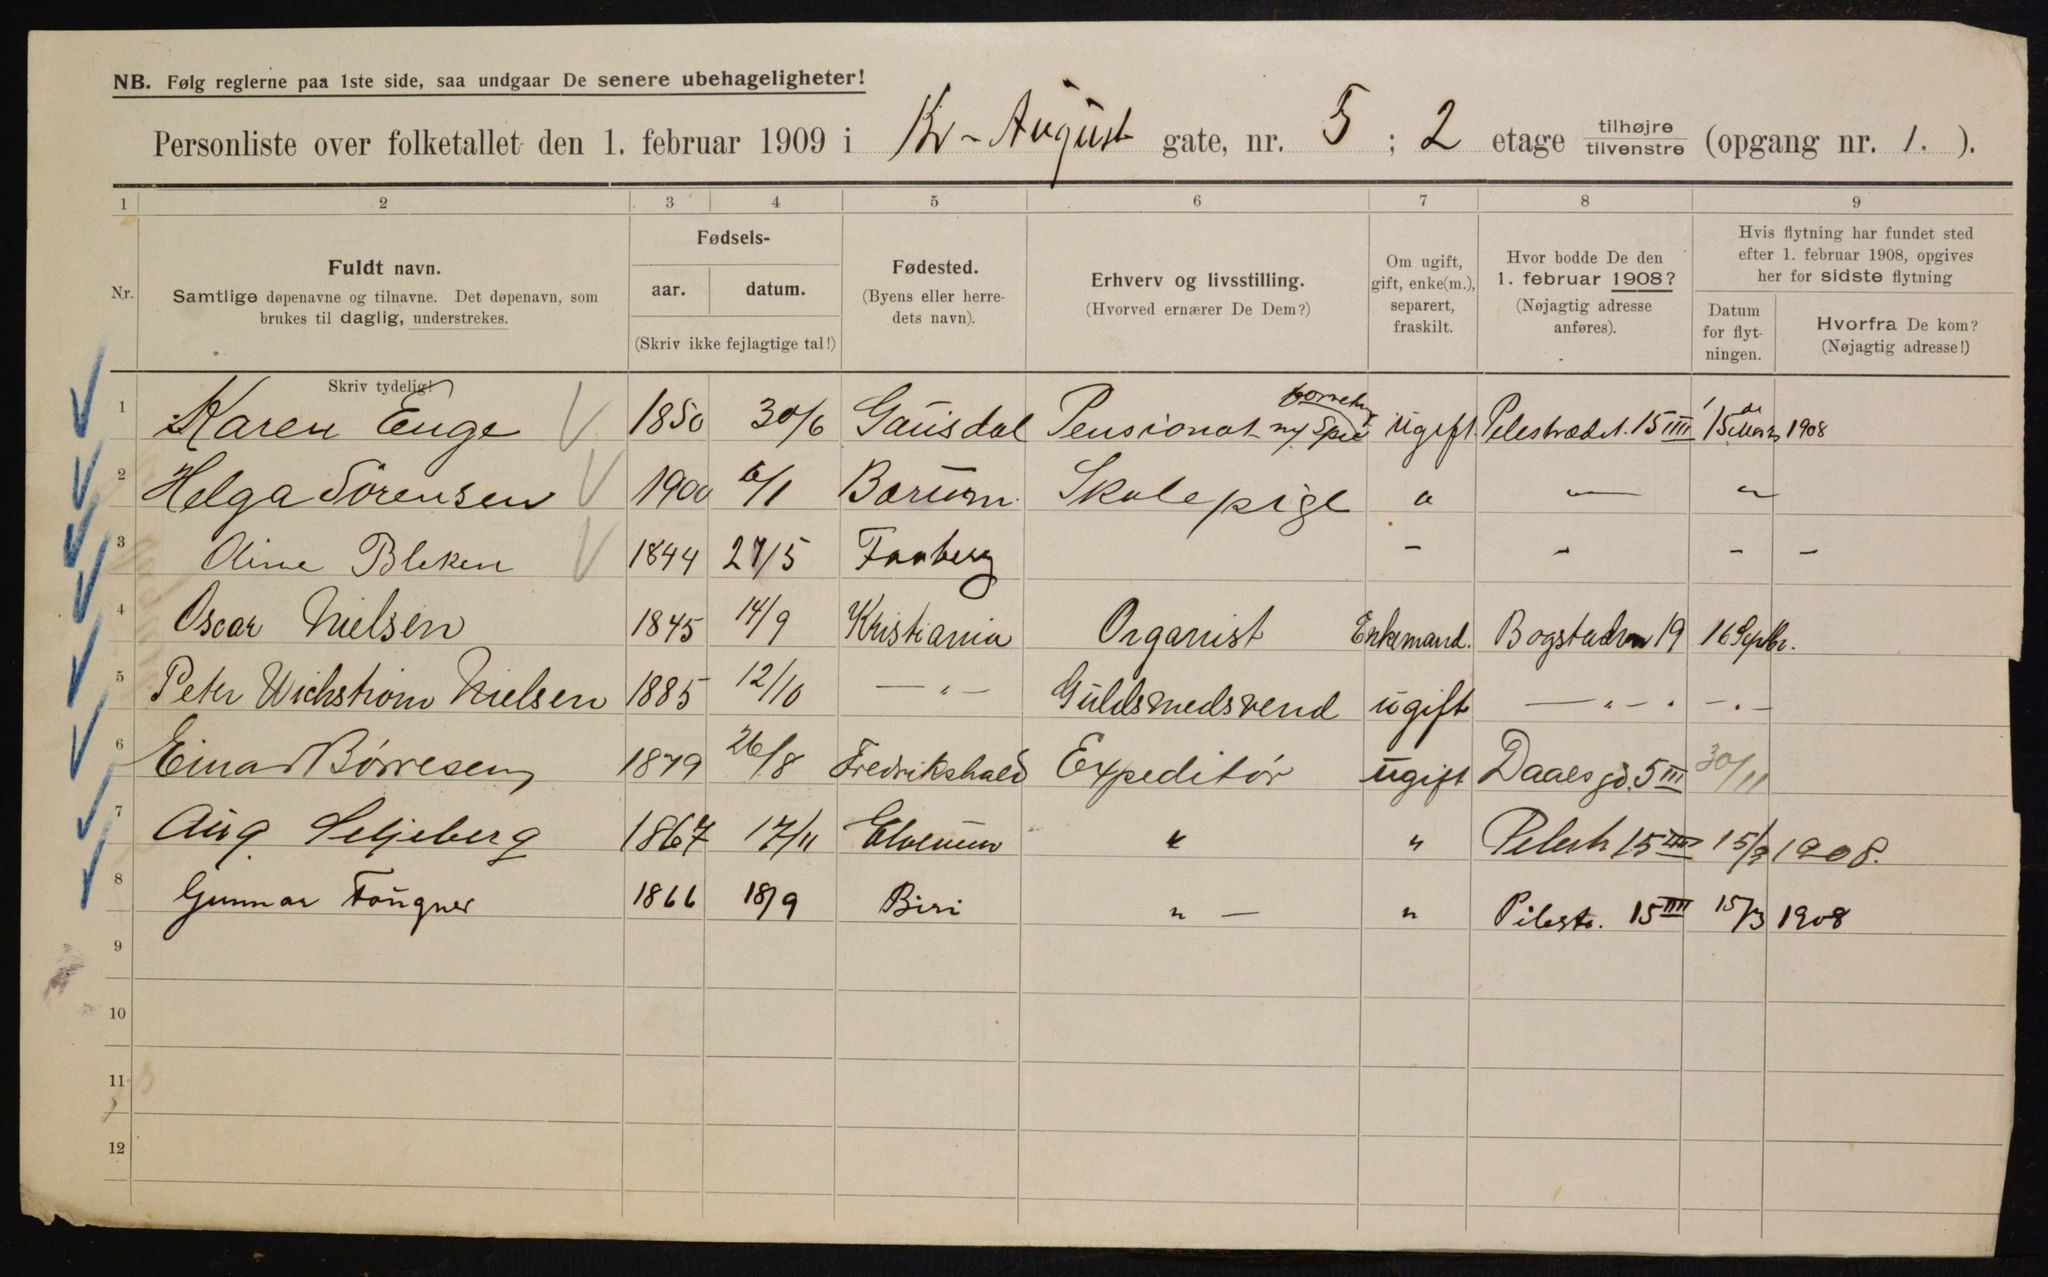 NB. Følg reglerne paa 1ste side, saa undgaar De senere ubehageligheter!
Personliste over folketallet den 1. februar 1909 i Kr-August gate, nr. 5 ; 2 etage tilhøjre tilvenstre (opgang nr. 1. ).
1 2 3 4 5 6 7 8 9
Nr. Fuldt navn. Samtlige døpenavne og tilnavne. Det døpenavn, som brukes til daglig, understrekes. Skriv tydelig!
Fødsels- aar. datum. (Skriv ikke fejlagtige tal!)
Fødested. (Byens eller herredets navn).
Erhverv og livsstilling. (Hvorved ernærer De Dem?)
Om ugift, gift, enke(m.), separert, fraskilt.
Hvor bodde De den 1. februar 1908? (Nøjagtig adresse anføres).
Hvis flytning har fundet sted efter 1. februar 1908, opgives her for sidste flytning
Datum for flytningen. Hvorfra De kom? (Nøjagtig adresse!)
1 Karen Enge 1850 30/6 Gausdal Pensionat ugift. Pelestrædet. 15 IIII 15 de Marts 1908
2 Helga Sørensen 1900 6/1 Bærum. Skolepige " — " — "
3 Oline Bleken 1844 27/5 Faaberg - " - -
4 Oscar Nielsen 1845 14/9 Kristiania Organist Enkemand. Bogstadvn 19 16 Septbr.
5 Peter Wichstrøm Nielsen 1885 12/10 — " — Guldsmedsvend ugift — " — " — " —
6 Einar Børresen 1879 26/8 Fredrikshald Expeditør ugift Daaes gd. 5 III 30/11
7 Aug Seljeberg 1867 17/11 Elverum " " Pelestr 15 IIII 15/3 1908.
8 Gunnar Fougner 1866 18/9 Biri " — " Pilestr. 15 IIII 15/3 1908
9
10
11
12